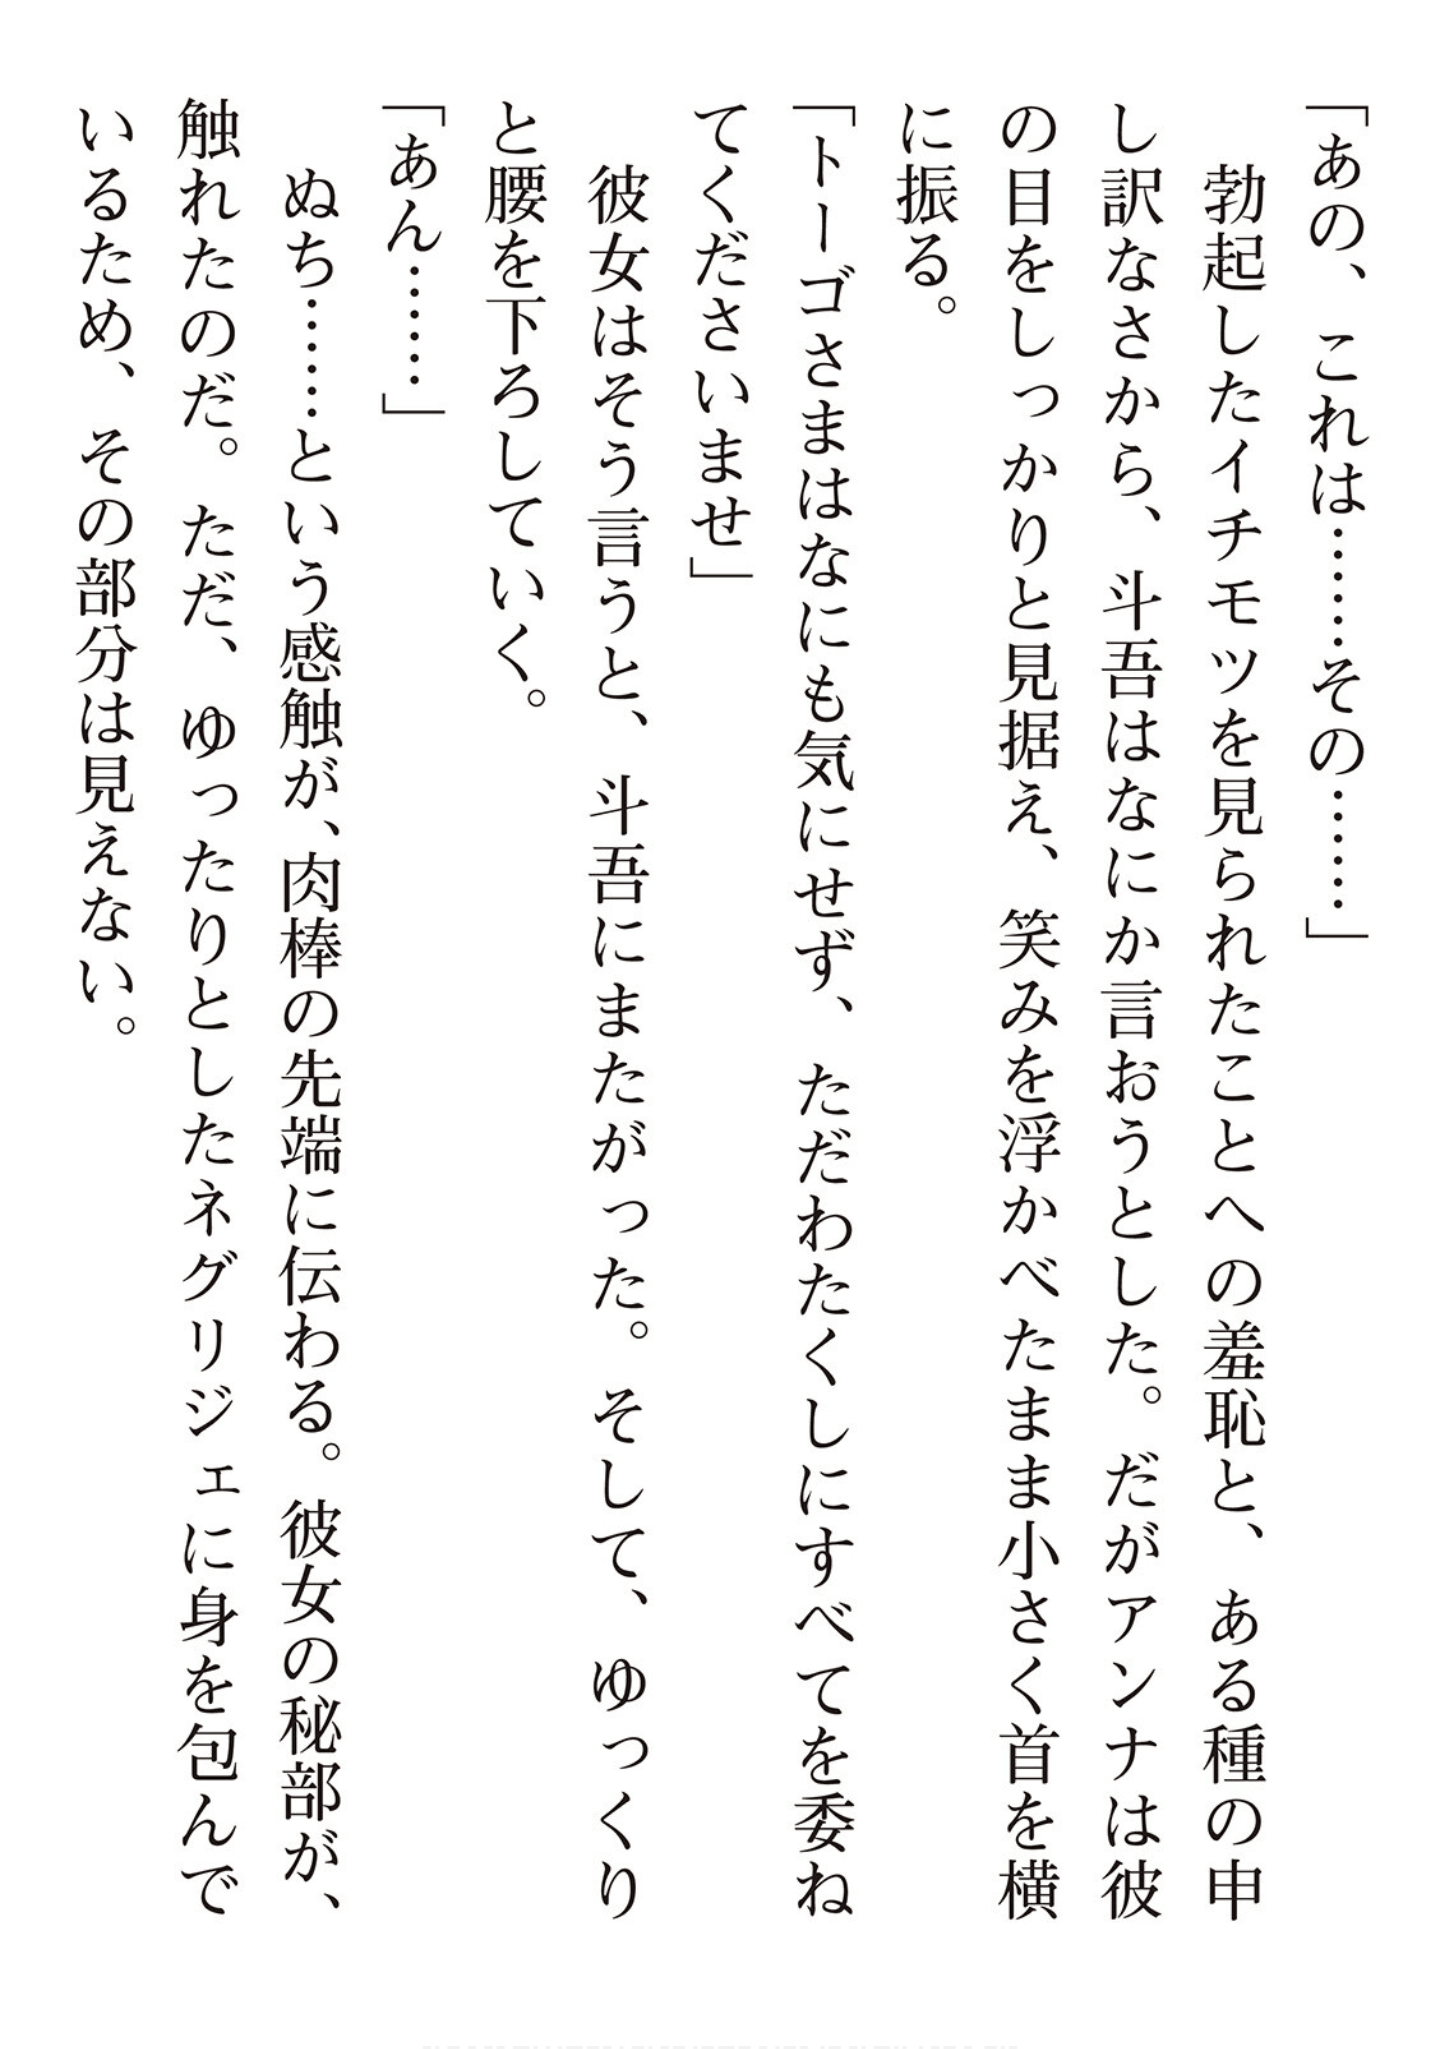 「あの、これは………その………」
　勃起したイチモツを見られたことへの羞恥と、ある種の申
し訳なさから、斗吾はなにか言おうとした。だがアンナは彼
の目をしっかりと見据え、笑みを浮かべたまま小さく首を横
に振る。
「トーゴさまはなにも気にせず、ただわたくしにすべてを委ね
てくださいませ」
　彼女はそう言うと、斗吾にまたがった。そして、ゆっくり
と腰を下ろしていく。
「あん………」
　ぬち………という感触が、肉棒の先端に伝わる。彼女の秘部が、
触れたのだ。ただ、ゆったりとしたネグリジェに身を包んで
いるため、その部分は見えない。